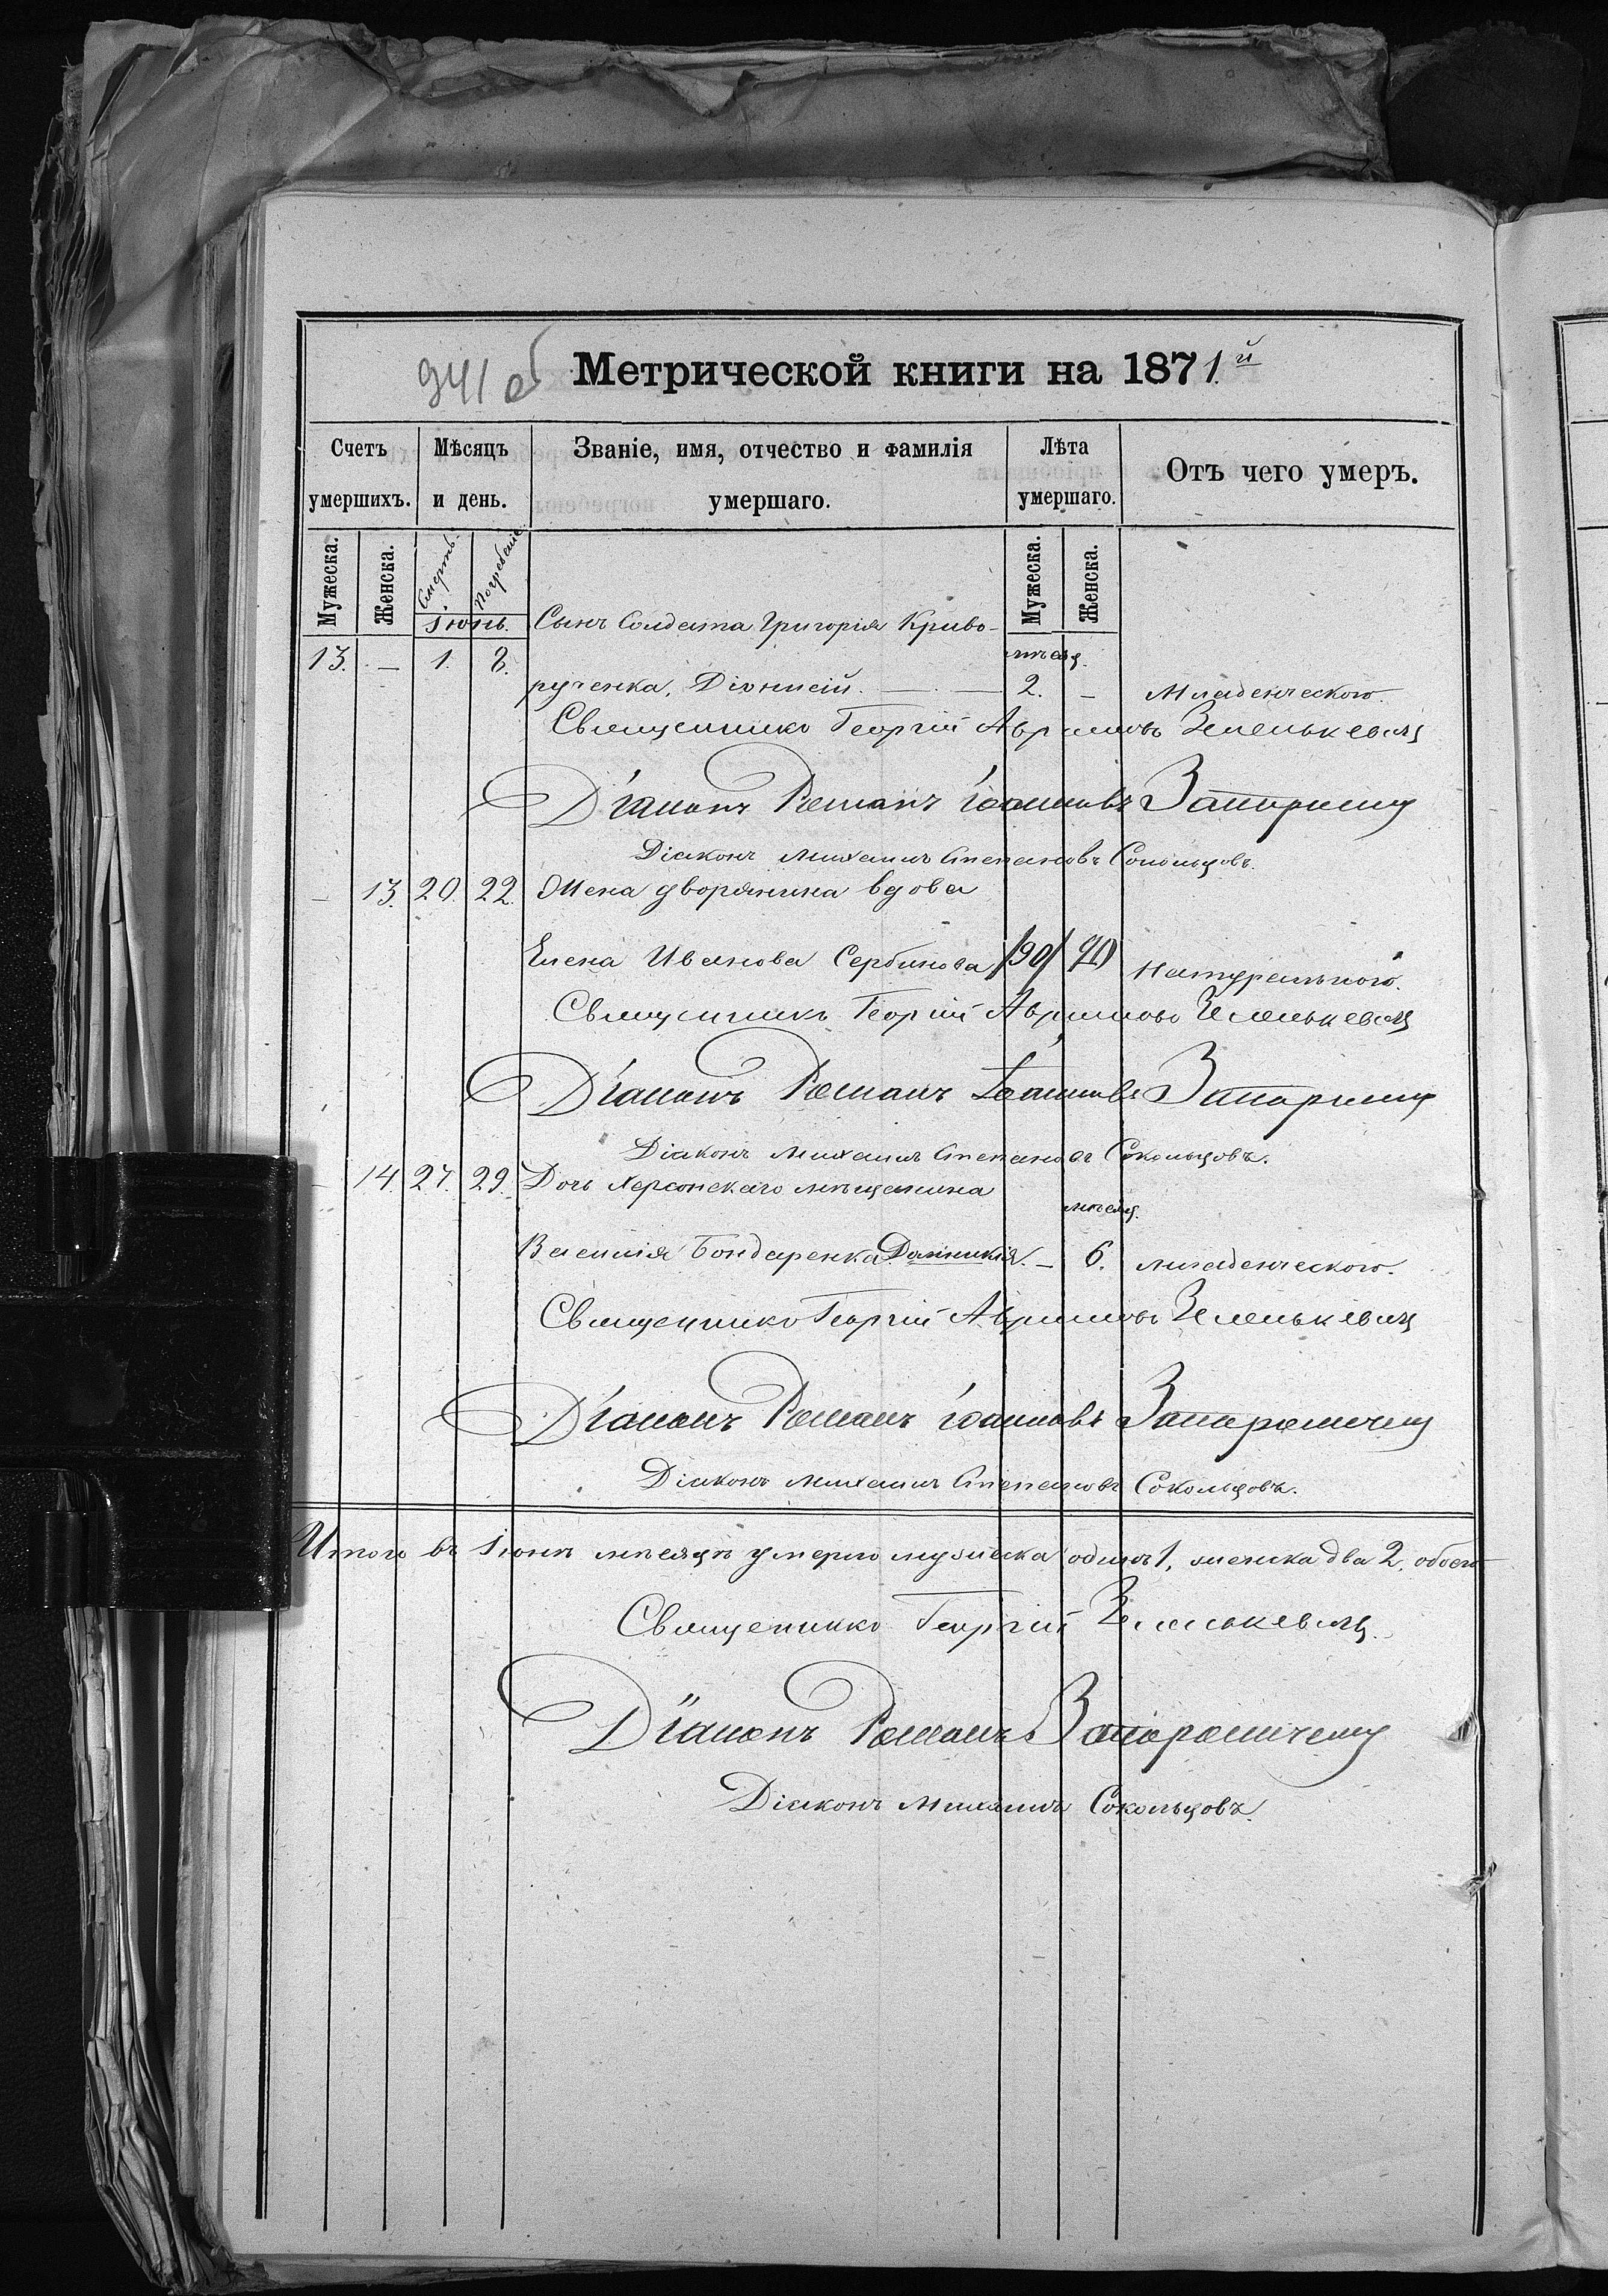 941 об
Метрической книги на 1871й
Счетъ умершихъ.
Мѣсяцъ и день.
Званіе, имя, отчество и фамилія умершаго.
Лѣта умершаго.
Отъ чего умеръ.
Мужеска.
Женска.
Смерть.
Погребеніе.
Мужеска.
Женска.
Іюнь. Сынъ Солдата Григорія Криво-
13. — 1. 3. мѣсяц.
рученка, Діонисій. — — 2. — Младенческого.
Священникъ Георгій Аврамовъ Зеленькевич
Діаконъ Романъ Іоанновъ
Діаконъ Михаилъ Степановъ Сокольцовъ.
— 13. 20. 22. Жена дворянина вдова
Елена Иванова Сербинова /90/ 90 Натурального.
Священникъ Георгій Аврамовъ Зеленькевич
Діаконъ Романъ Іоанновъ
Діаконъ Михаилъ Степановъ Сокольцовъ.
— 14. 27. 29. Дочь Херсонскаго мѣщанина
мѣсяц.
Василія Бондаренка Домникія. — 6. младенческого.
Священникъ Георгій Аврамовъ Зеленькевич
Діаконъ Романъ Іоанновъ
Діаконъ Михаилъ Степановъ Сокольцовъ.
Итого въ Іюнѣ мѣсяцѣ умерло мужеска одинъ 1, женска два 2, обоего
Священникъ Георгій Зеленькевич.
Діаконъ Романъ
Діаконъ Михаилъ Сокольцовъ.